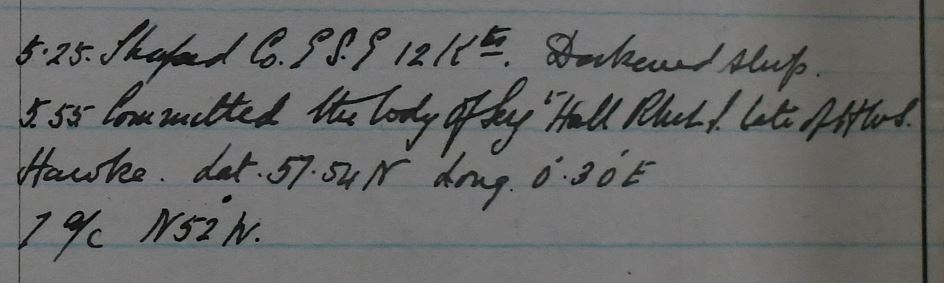 5.25. Shaped Co. E S. E 12 Kts. Darkened ship.
5.55 Committed the body of Sergt Hall R.M.L.I. late of H.M.S.
Hawke. Lat. 57.54 N Long. 0°.30' E
7 a/c N52°W.